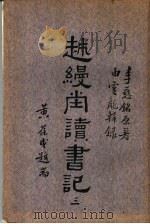 李慈銘原著
由雲龍輯錄
越縵堂讀書記
三
黃葆戉題耑